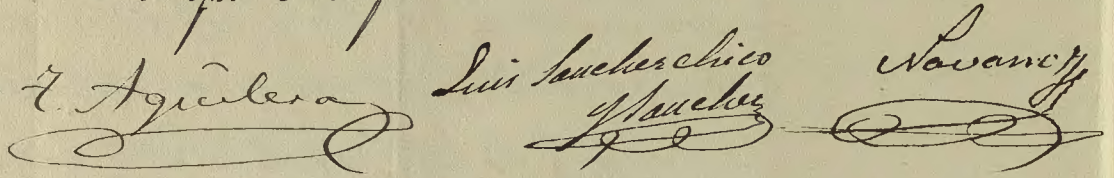 F. Aguilera
Luis Sanchezchico
y Sanchez
Navarro